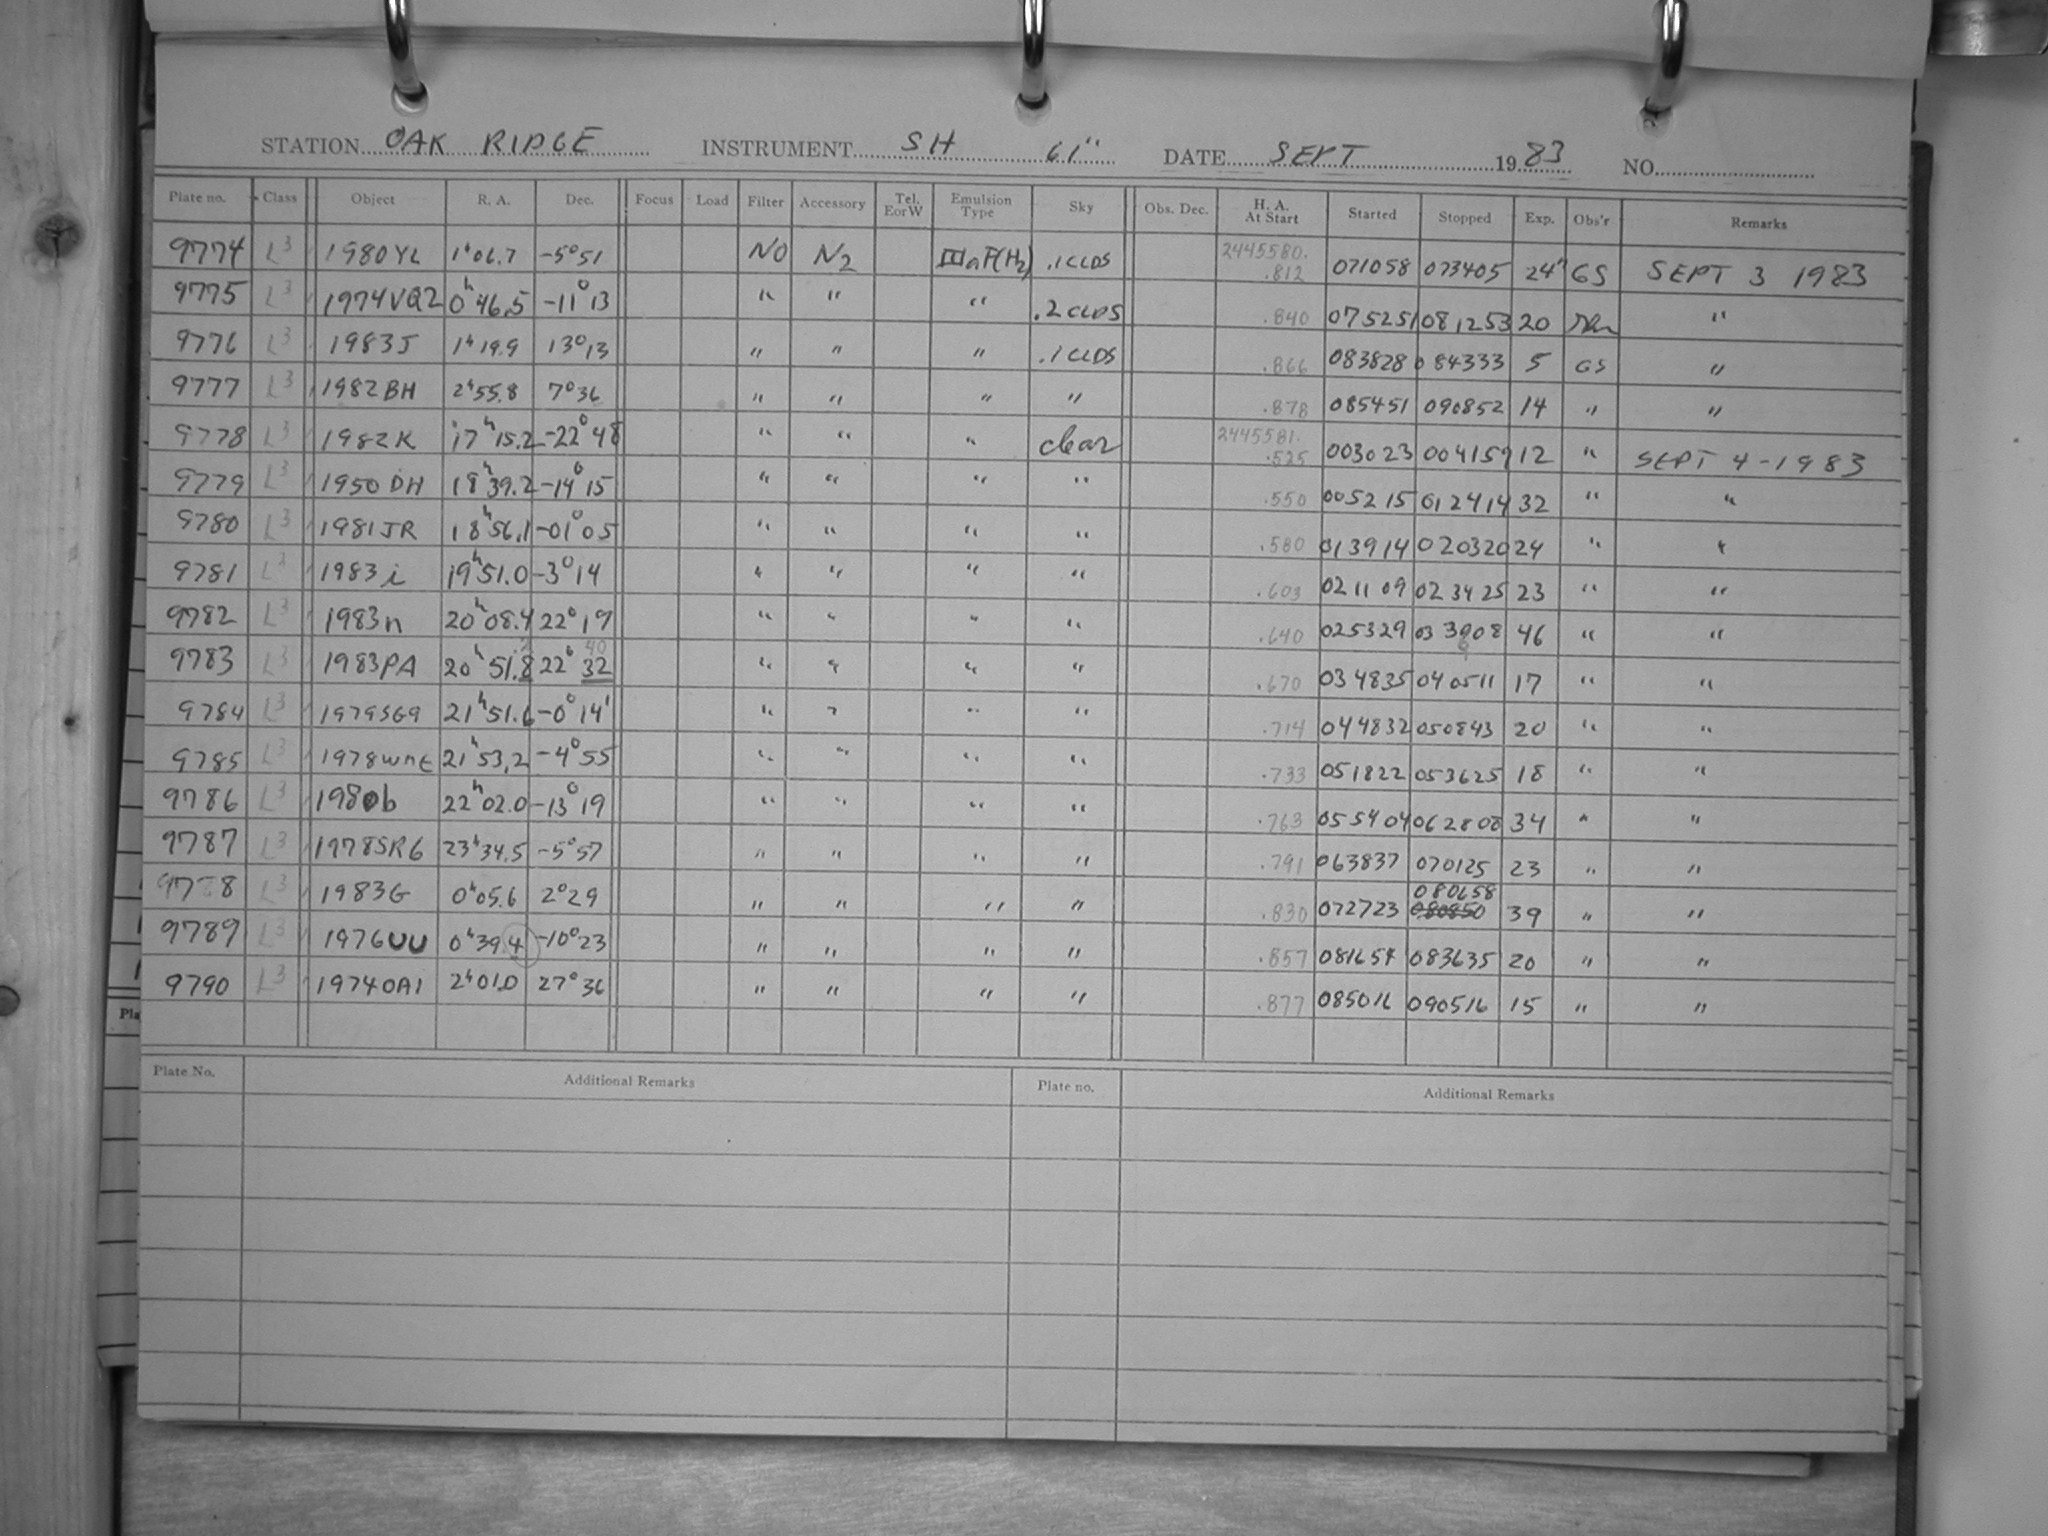 STATION OAK RIDGE INSTRUMENT SH 61" DATE SEPT 1983 NO.
Plate no. Class Object R. A. Dec. Focus Load Filter Accessory Tel. EorW Emulsion Type Sky Obs. Dec. H. A. At Start Started Stopped Exp. Obs'r Remarks
9774 L3 1980YL 1h06.7 -5°51 NO N2 IIIaF(H2) .1CLDS 2445580. .812 071058 073405 24m GS SEPT 3 1983
9775 L3 1974VQ2 0h46.5 -11°13 " " " .2CLDS .840 075251 081253 20 "
9776 L3 1983J 1h19.9 13°13 " " " .1CLDS .866 083828 084333 5 GS "
9777 L3 1982BH 2h55.8 7°36 " " " " .878 085451 090852 14 " "
9778 L3 1982K 17h15.2 -22°48 " " " clear 2445581. .525 003023 004159 12 " SEPT 4-1983
9779 L3 1950DH 18h39.2 -14°15 " " " " .550 005215 012414 32 " "
9780 L3 1981JR 18h56.1 -01°05 " " " " .580 013914 020320 24 " "
9781 L3 1983i 19h51.0 -3°14 " " " " .603 021109 023425 23 " "
9782 L3 1983n 20h08.4 22°19 " " " " .640 025329 033908 46 " "
9783 L3 1983PA 20h51.8 22°32 40 " " " " .670 034835 040511 17 " "
9784 L3 1979SG9 21h51.6 -0°14' " " " " .714 044832 050843 20 " "
9785 L3 1978WnE 21h53.2 -4°55 " " " " .733 051822 053625 18 " "
9786 L3 1980b 22h02.0 -13°19 " " " " .763 055404 062808 34 " "
9787 L3 1978SR6 23h34.5 -5°57 " " " " .791 063837 070125 23 " "
9788 L3 1983G 0h05.6 2°29 " " " " .830 072723 080850 080658 39 " "
9789 L3 1976UU 0h39.4 -10°23 " " " " .857 081654 083635 20 " "
9790 L3 1974OA1 2h01.0 27°36 " " " " .877 085016 090516 15 " "
Plate No. Additional Remarks Plate no. Additional Remarks